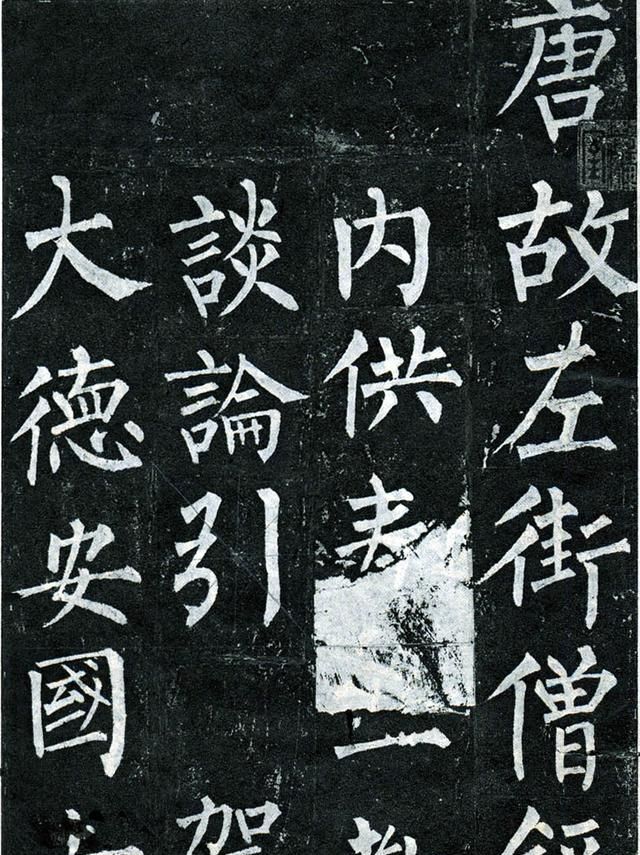 唐故左街僧
内供
談論引
大德安國